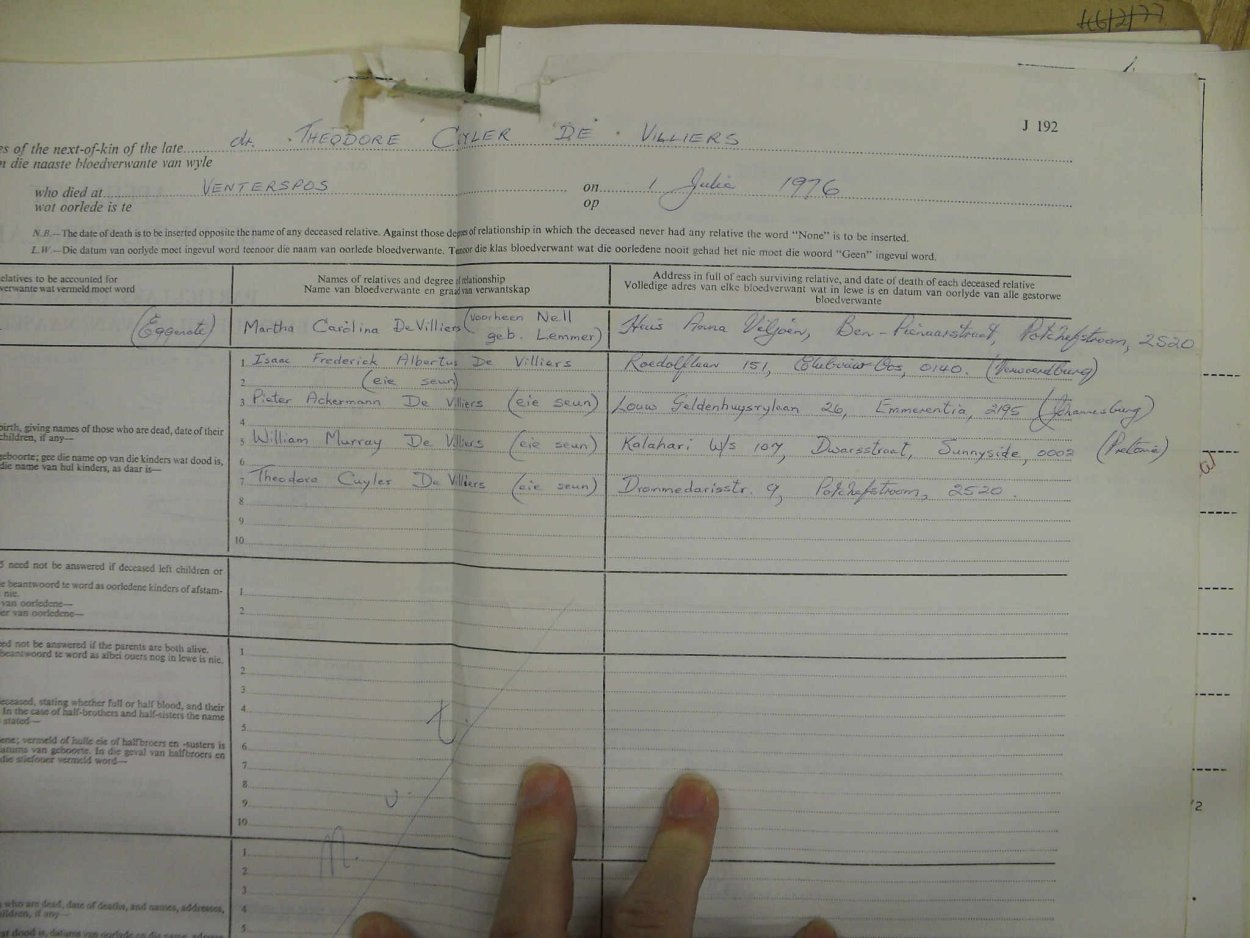 16/2/77
J 192
es of the next-of-kin of the late dr. THEODORE CUYLER DE VILLIERS
n die naaste bloedverwante van wyle
who died at VENTERSPOS on 1 Julie 1976
wat oorlede is te op
N.B.—The date of death is to be inserted opposite the name of any deceased relative. Against those degrees of relationship in which the deceased never had any relative the word "None" is to be inserted.
L.W.—Die datum van oorlyde moet ingevul word teenoor die naam van oorlede bloedverwante. Teenoor die klas bloedverwant wat die oorledene nooit gehad het nie moet die woord "Geen" ingevul word.
elatives to be accounted for
verwante wat vermeld moet word
Names of relatives and degree of relationship
Name van bloedverwante en graad van verwantskap
Address in full of each surviving relative, and date of death of each deceased relative
Volledige adres van elke bloedverwant wat in lewe is en datum van oorlyde van alle gestorwe
bloedverwante
(Eggenote) Martha Carolina De Villiers (voorheen Nell
geb. Lemmer)
Huis Anna Viljoen, Ben-Pienaarstraat, Potchefstroom, 2520
1 Isaac Frederick Albertus De Villiers Roedolflaan 151, Clubview-Oos, 0140. (Verwoerdburg)
2 (eie seun)
3 Pieter Ackermann De Villiers (eie seun) Louw Geldenhuysrylaan 26, Emmerentia, 2195 (Johannesburg)
4
birth, giving names of those who are dead, date of their
children, if any—
5 William Murray De Villiers (eie seun) Kalahari W/s 107, Dwarsstraat, Sunnyside, 0002 (Pretoria)
geboorte; gee die name op van die kinders wat dood is,
die name van hul kinders, as daar is—
6
7 Theodore Cuyler De Villiers (eie seun) Drommedarisstr. 9, Potchefstroom, 2520.
8
9
10
need not be answered if deceased left children or
e beantwoord te word as oorledene kinders of afstam-
nie.
van oorledene—
er van oorledene—
1
2
ed not be answered if the parents are both alive.
beantwoord te word as albei ouers nog in lewe is nie.
eceased, stating whether full or half blood, and their
In the case of half-brothers and half-sisters the name
stated—
ene; vermeld of hulle eie of halfbroers en -susters is
datums van geboorte. In die geval van halfbroers en
die stiefouer vermeld word—
1
2
3
4
5
6
7
8
9
10
t.
v.
n.
1
2
3
4
5
who are dead, date of deaths, and names, addresses,
ildren, if any—
/2